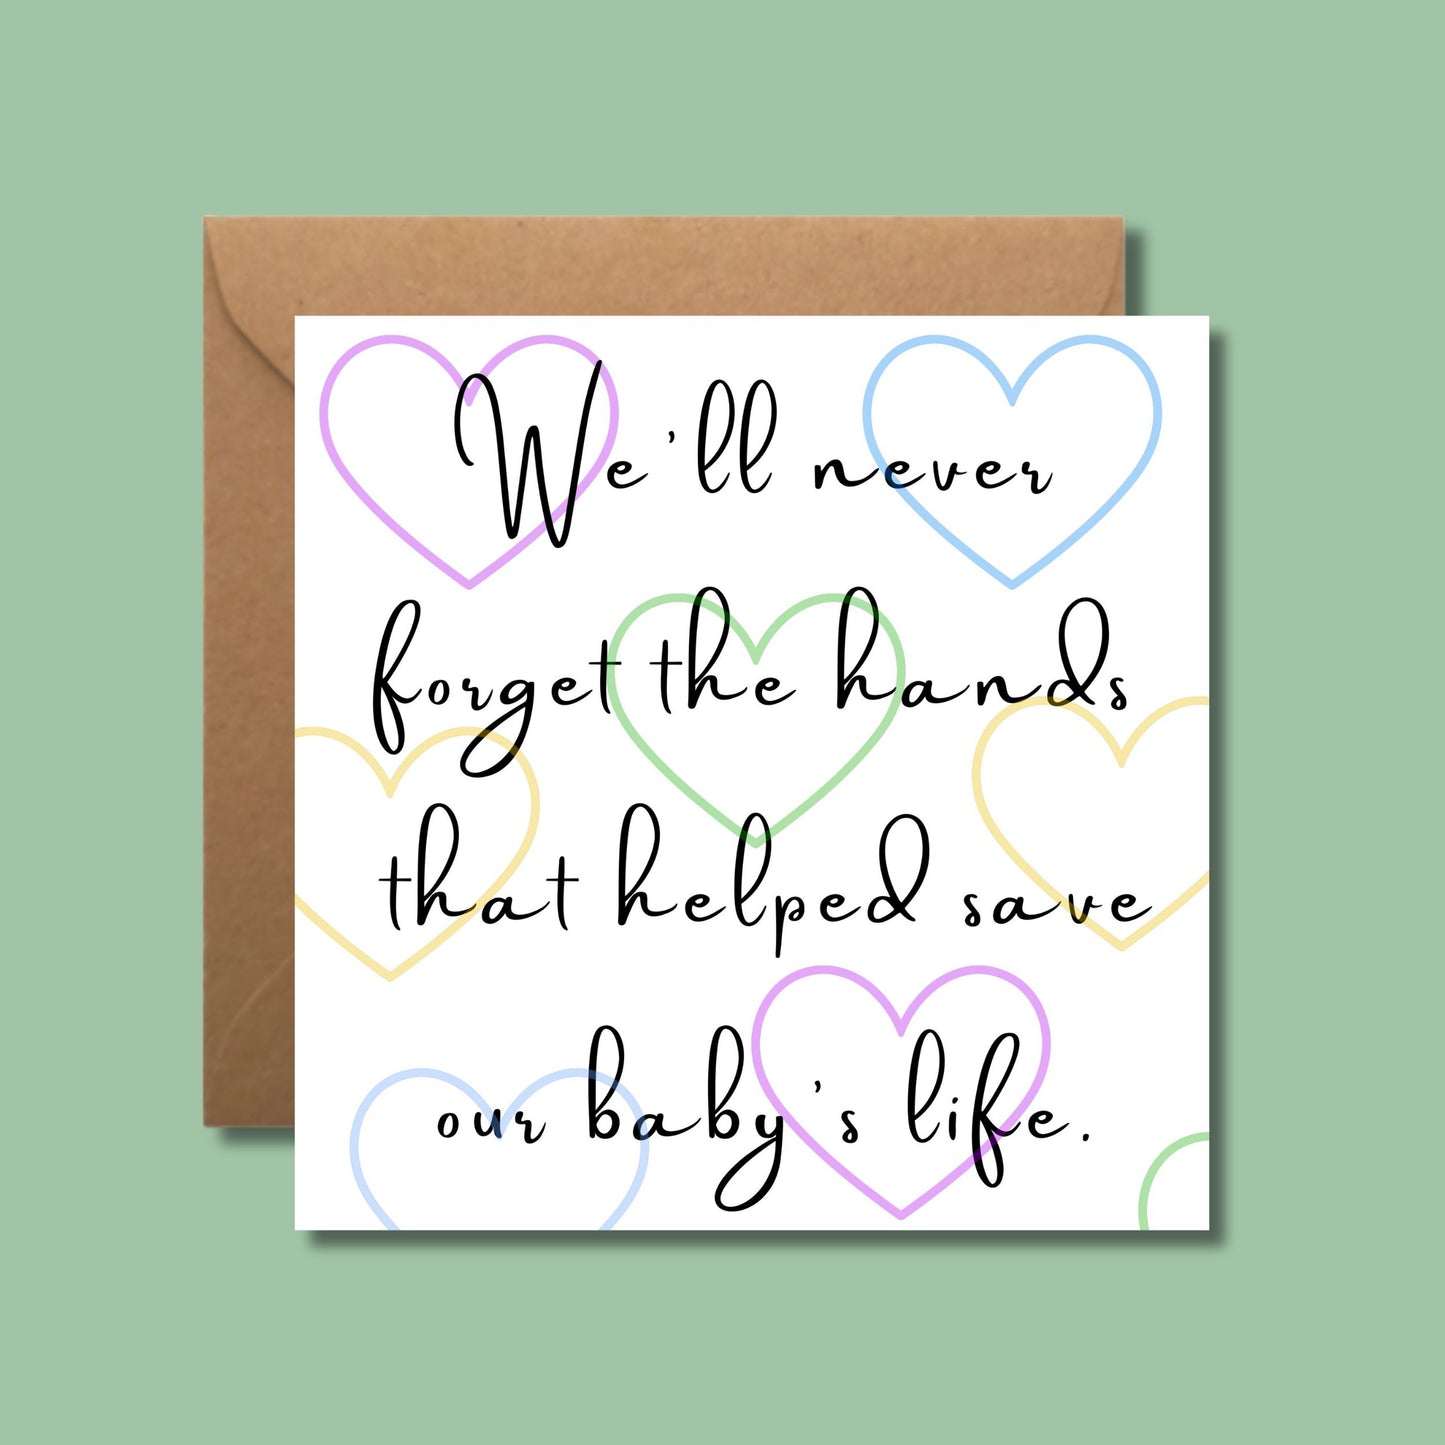 We'll never
forget the hands
that helped save
our baby's life.